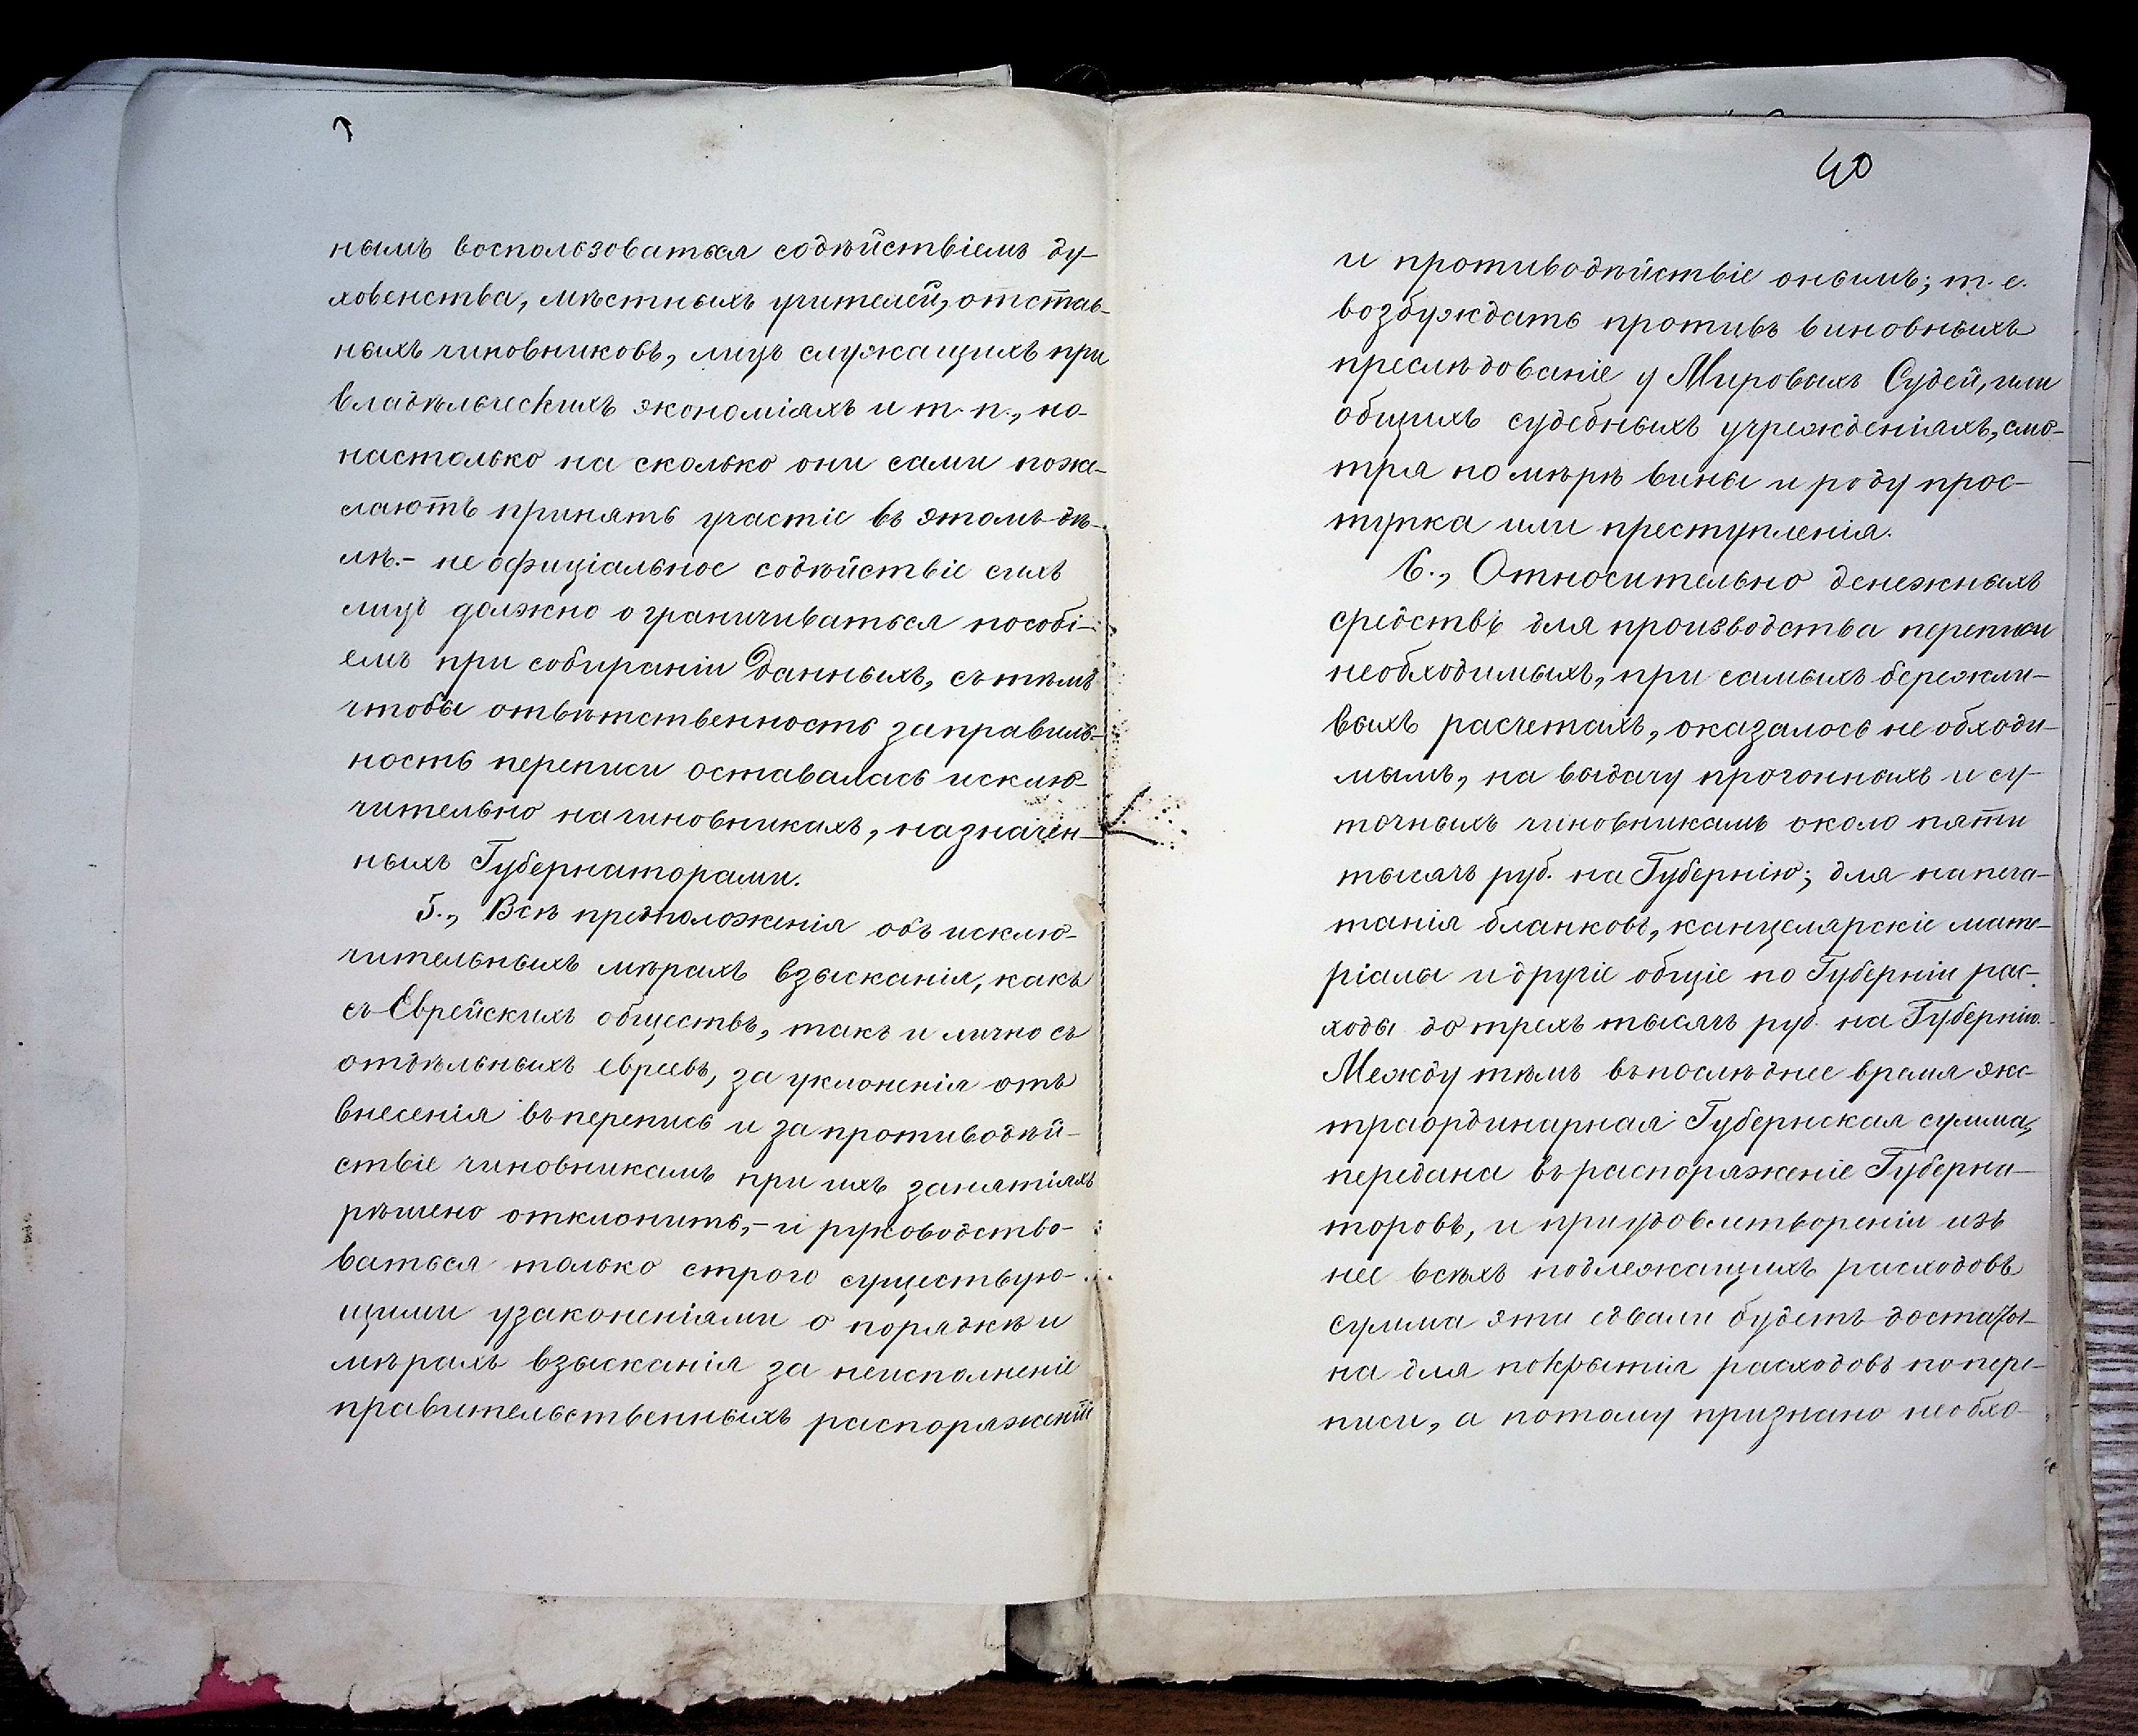 нымъ воспользоваться содѣйствіемъ ду-
ховенства, мѣстныхъ учителей, отстав-
ныхъ чиновниковъ, лицъ служащихъ при
владѣльческихъ экономіяхъ и т. п., но-
настолько на сколько они сами пожа-
лаютъ принять участіе въ этомъ дѣ-
лѣ.- не офиціальное содѣйствіе сихъ
лицъ должно ограничиваться пособі-
емъ при собираніи Данныхъ, съ тѣмъ
чтобы отвѣтственность за правиль-
ность переписи оставалась исклю-
чительно на чиновникахъ, назначен-
ныхъ Губернаторами.
5., Всѣ предположенія объ исклю-
чительныхъ мѣрахъ взысканія, какъ
съ Еврейскихъ обществъ, такъ и лично съ
отдѣльныхъ евреевъ, за уклоненія отъ
внесенія въ перепись и за противодѣй-
ствіе чиновникамъ при ихъ занятіяхъ
рѣшено отклонить,- и руководство-
ваться только строго существую-
щими узаконеніями о порядкѣ и
мѣрахъ взысканія за неисполненіе
правительственныхъ распоряженій
40
и противодѣйствіе онымъ; т. е.
возбуждать противъ виновныхъ
преслѣдованіе у Мировыхъ Судей, или
общихъ судебныхъ учрежденіяхъ, смо-
тря по мѣрѣ вины и роду прос-
тупка или преступленія.
6., Относительно денежныхъ
средствъ для производства переписи
необходимыхъ, при самыхъ бережли-
выхъ расчетахъ, оказалось необходи-
мымъ, на выдачу прогонныхъ и су-
точныхъ чиновникамъ около пяти
тысячъ руб. на Губернію; для напеча-
танія бланковъ, канцелярскіе мате-
ріалы и другіе общіе по Губерніи рас-
ходы до трехъ тысячъ руб. на Губернію.
Между тѣмъ въ послѣднее время экс-
траординарная Губернская сумма,
передана въ распоряженіе Губерна-
торовъ, и при удовлетвореніи изъ
нее всѣхъ подлежащихъ расходовъ
сумма эта едвали будетъ достаточ-
на для покрытія расходовъ по пере-
писи, а потому признано необхо-